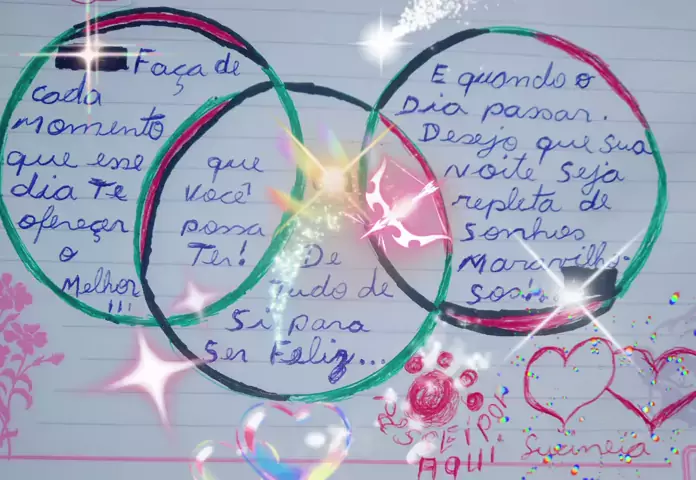 Faça de
cada
momento
que esse
dia Te
ofereçer
o
Melhor!!!
que
você
possa
Ter! De
Tudo de
Si para
Ser Feliz...
E quando o
Dia passar.
Desejo que sua
Noite Seja
repleta de
Sonhos
Maravilho-
sos!
AQUI.